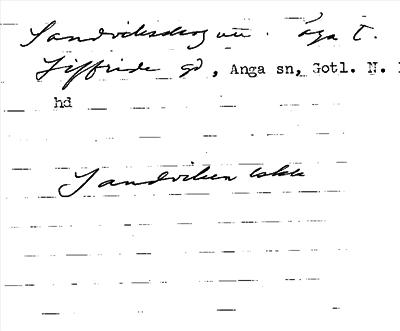 Sandviksskog äga t.
Siffride gd, Anga sn, Gotl. N.
hd
Sandviken